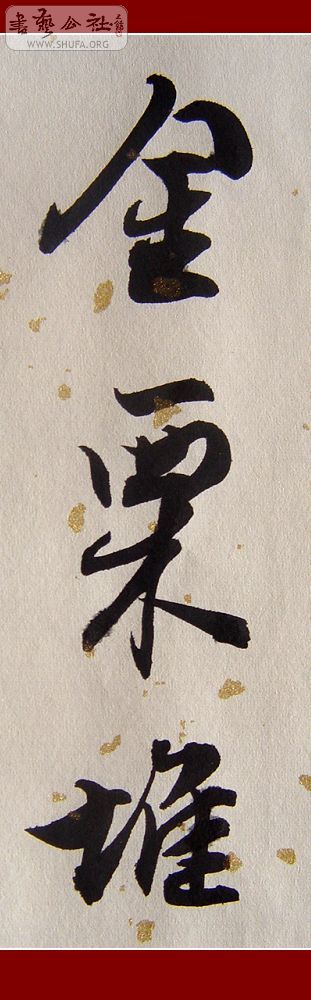 書藝公社
WWW.SHUFA.ORG
金
粟
堆